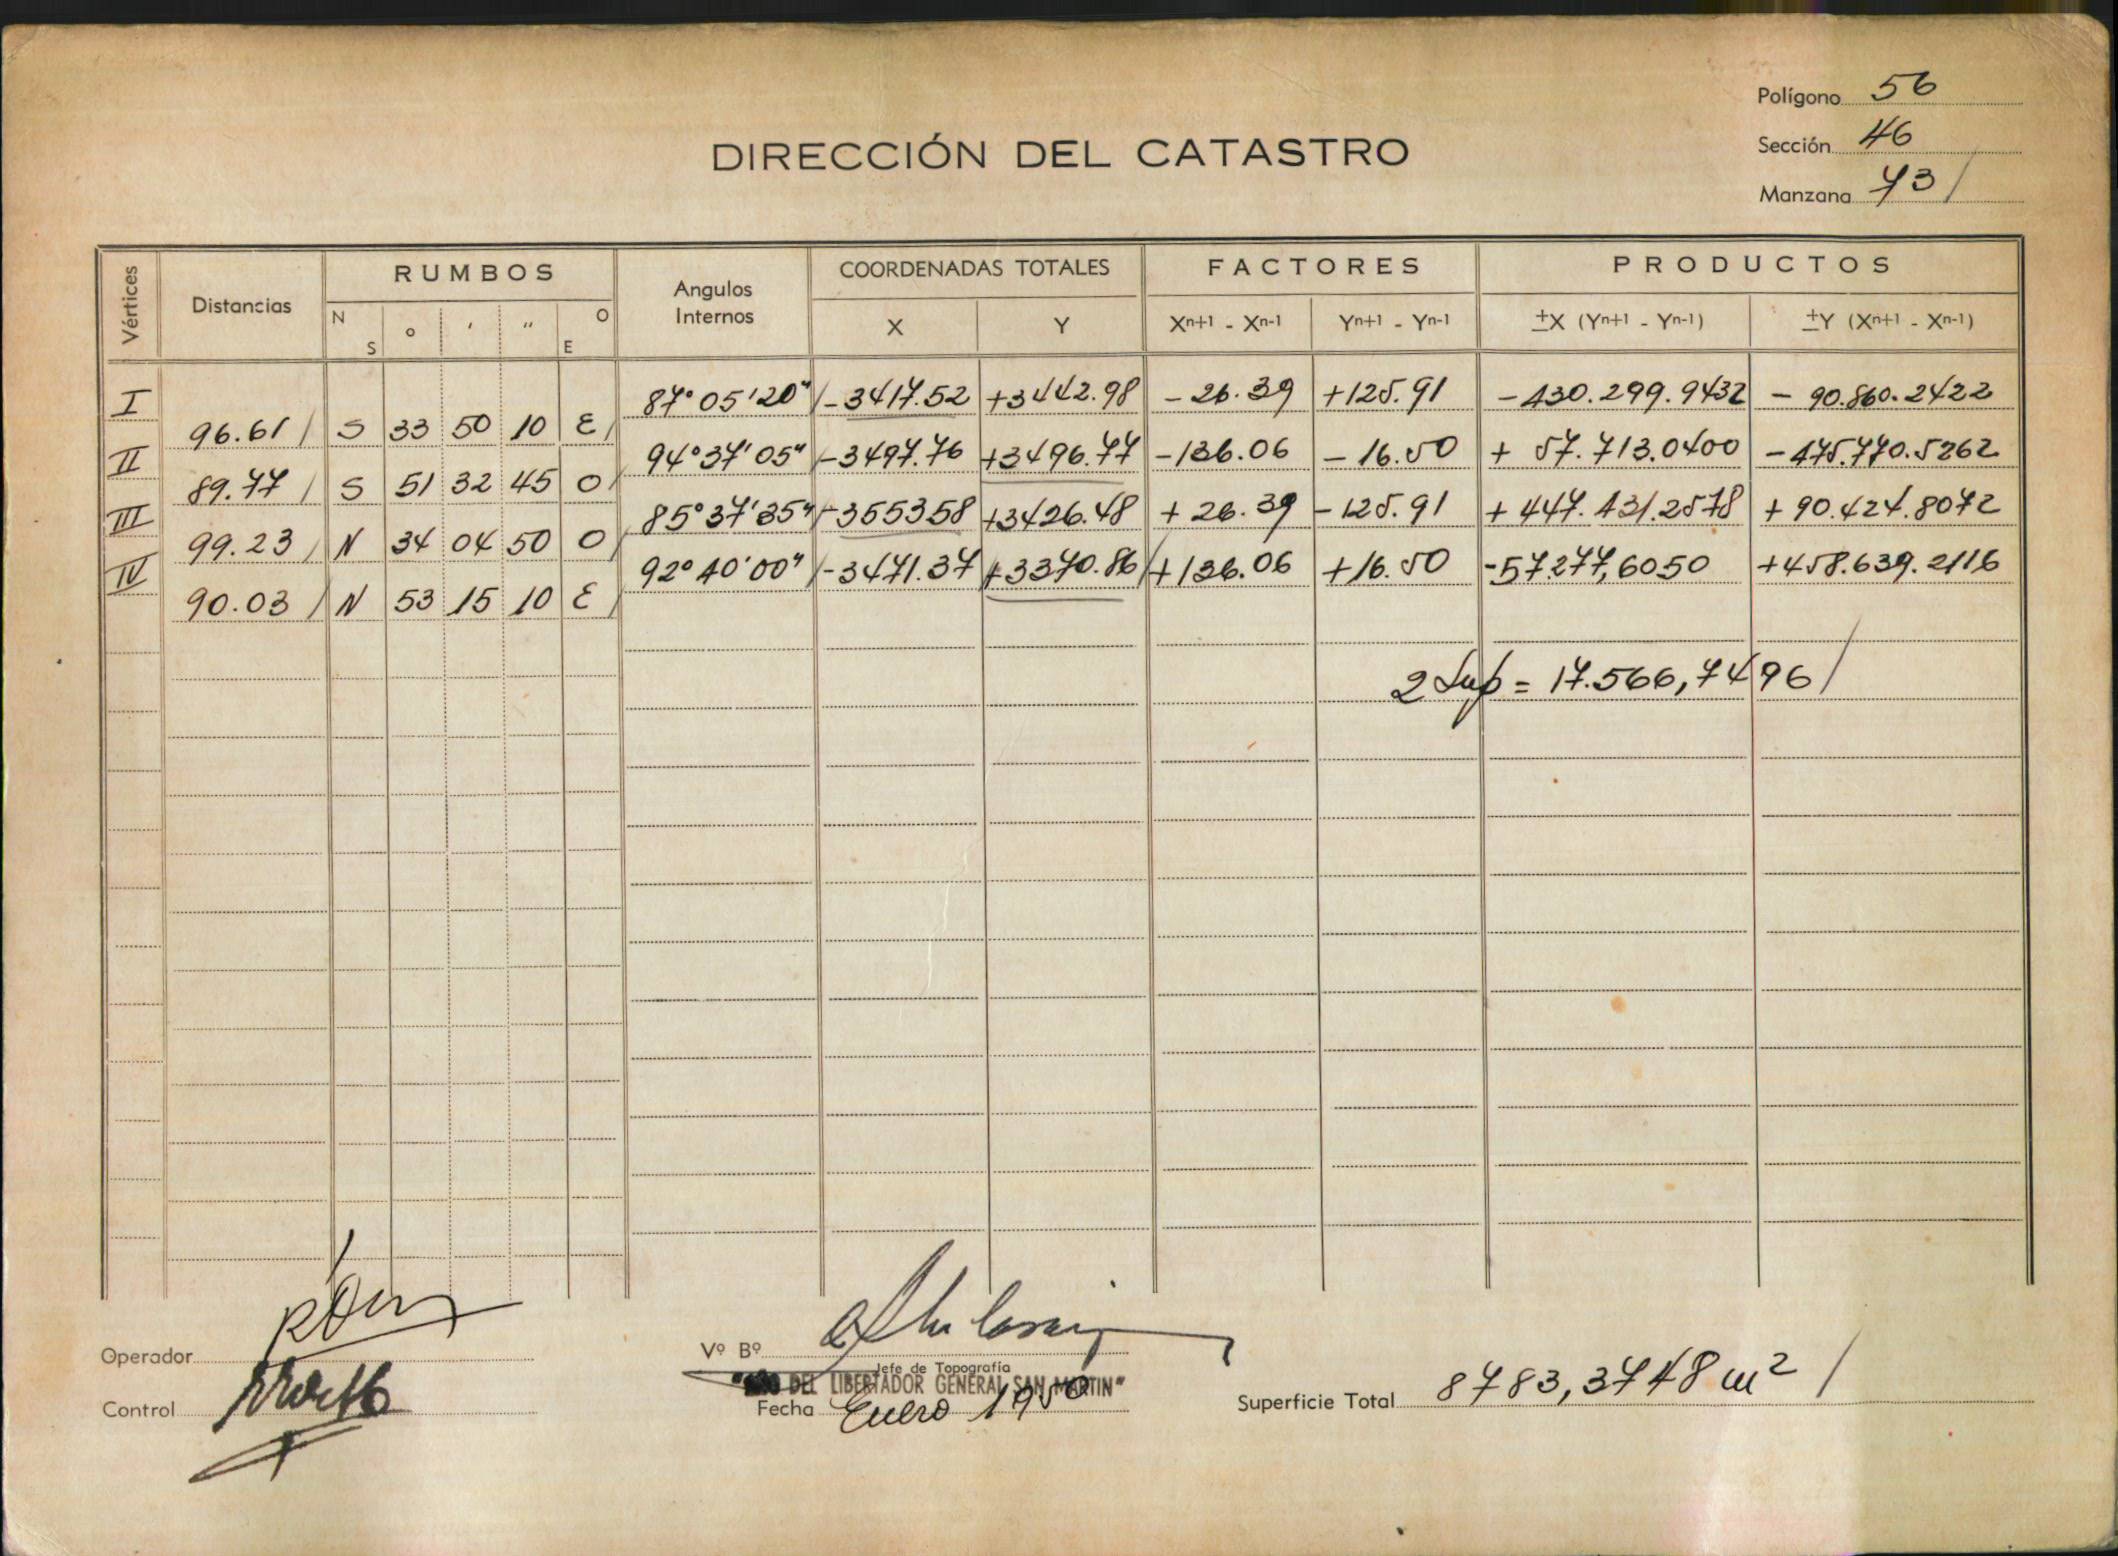 Polígono 56
Sección 46
Manzana 73 /
DIRECCIÓN DEL CATASTRO
Vértices Distancias RUMBOS Angulos Internos COORDENADAS TOTALES FACTORES PRODUCTOS
N S ° ' " O E X Y Xn+1 - Xn-1 Yn+1 - Yn-1 ±X (Yn+1 - Yn-1) ±Y (Xn+1 - Xn-1)
I 87° 05' 20" / -3417.52 +3442.98 -26.39 +125.91 -430.299.9432 -90.860.2422
96.61 / S 33 50 10 E /
II 94° 37' 05" -3497.76 +3496.77 -136.06 -16.50 +57.713.0400 -475.770.5262
89.77 / S 51 32 45 O /
III 85° 37' 35" -355358 +3426.48 +26.39 -125.91 +447.431.2578 +90.424.8072
99.23 / N 34 04 50 O /
IV 92° 40' 00" -3471.37 +3370.86 / +136.06 +16.50 -57.277,6050 +458.639.2116
90.03 / N 53 15 10 E /
2 Sup = 17.566,7496 /
Operador
Vº Bº
Jefe de Topografía
DEL LIBERTADOR GENERAL SAN MARTIN"
Control
Fecha Enero 1950
Superficie Total 8783,3748 m² /